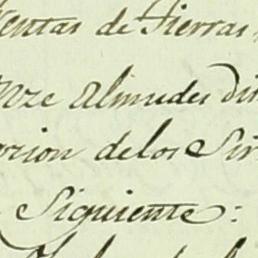 entas de Tierras
nze Almudes di
orcion delos Sir
Siguiente: